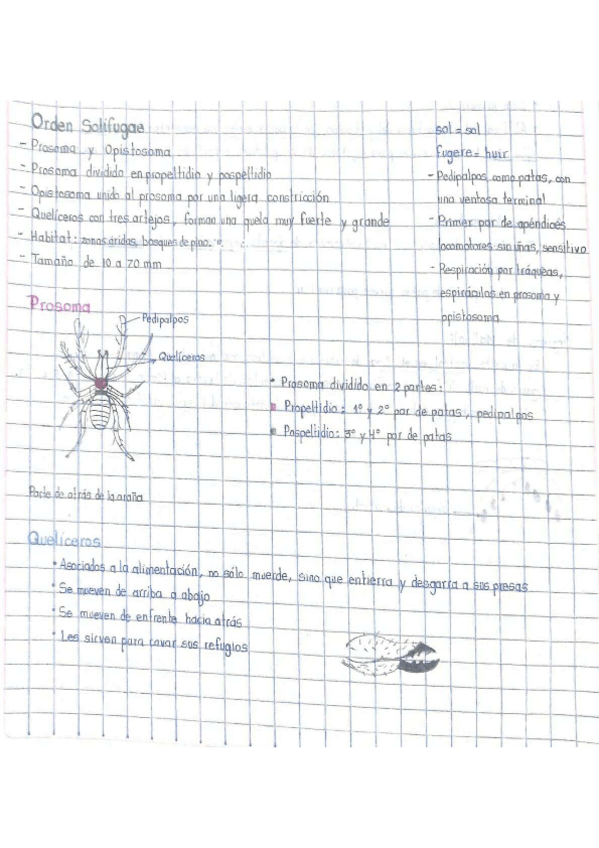 Orden Solifugae
- Prosoma y Opistosoma
- Prosoma dividido en propeltidio y pospeltidio
- Opistosoma unido al prosoma por una ligera constricción
- Quelíceros con tres artejos, forman una quela muy fuerte y grande
- Habitat: zonas áridas, bosques de pino.
- Tamaño de 10 a 70 mm
sol = sol
fugere = huir
- Pedipalpos, como patas, con
una ventosa terminal
- Primer par de apéndices
locomotores sin uñas, sensitivo
- Respiración por tráqueas,
espiráculos en prosoma y
opistosoma
Prosoma
Pedipalpos
Quelíceros
• Prosoma dividido en 2 partes:
Propeltidio: 1° y 2° par de patas, pedipalpos
Pospeltidio: 3° y 4° par de patas
Parte de atrás de la araña
Quelíceros
• Asociados a la alimentación, no sólo muerde, sino que entierra y desgarra a sus presas
• Se mueven de arriba a abajo
• Se mueven de enfrente hacia atrás
• Les sirven para cavar sus refugios